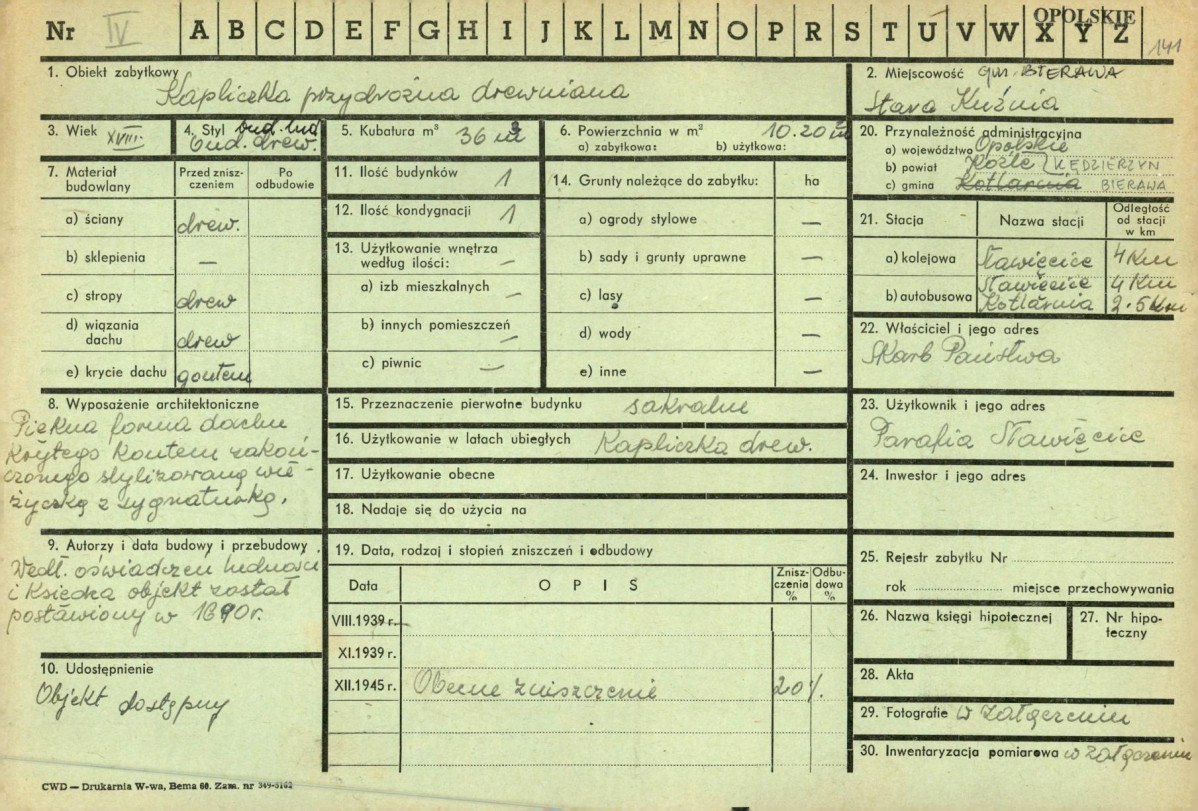 Nr IV A B C D E F G H I J K L M N O P R S T U V W X Y Z OPOLSKIE
141
1. Obiekt zabytkowy
Kapliczka przydrożna drewniana
2. Miejscowość gm. BIERAWA
Stara Kuźnia
3. Wiek XVIII.
4. Styl bud. lud
bud. drew.
5. Kubatura m³ 36 m³
6. Powierzchnia w m² 10.20 m²
a) zabytkowa: b) użytkowa:
20. Przynależność administracyjna
a) województwo Opolskie
b) powiat Koźle KĘDZIERZYN
c) gmina Kotlarnia BIERAWA
7. Materiał budowlany
Przed znisz-
czeniem
Po
odbudowie
a) ściany drew.
b) sklepienia —
c) stropy drew
d) wiązania
dachu drew
e) krycie dachu gontem
11. Ilość budynków 1
12. Ilość kondygnacji 1
13. Użytkowanie wnętrza
według ilości: —
a) izb mieszkalnych —
b) innych pomieszczeń —
c) piwnic —
14. Grunty należące do zabytku: ha
a) ogrody stylowe —
b) sady i grunty uprawne —
c) lasy —
d) wody —
e) inne —
21. Stacja
Nazwa stacji
Odległość
od stacji
w km
a) kolejowa Sławięcice 4 Km
b) autobusowa Sławięcice 4 Km
Kotlarnia 2.5 Km
22. Właściciel i jego adres
Skarb Państwa
8. Wyposażenie architektoniczne
Piękna forma dachu
krytego kontem zakoń-
czonego stylizowaną wie-
życzką z sygnaturką.
15. Przeznaczenie pierwotne budynku sakralne
16. Użytkowanie w latach ubiegłych Kapliczka drew.
17. Użytkowanie obecne
18. Nadaje się do użycia na
23. Użytkownik i jego adres
Parafia Sławięcice
24. Inwestor i jego adres
9. Autorzy i data budowy i przebudowy
Wedł. oświadczeń ludności
i Księdza objekt został
postawiony w 1690r.
10. Udostępnienie
Objekt dostępny
19. Data, rodzaj i stopień zniszczeń i odbudowy
Data
OPIS
Znisz-
czenia
%
Odbu-
dowa
%
VIII.1939 r.
XI.1939 r.
XII.1945 r. Obecne zniszczenie 20%.
25. Rejestr zabytku Nr
rok miejsce przechowywania
26. Nazwa księgi hipotecznej
27. Nr hipo-
teczny
28. Akta
29. Fotografie w załączeniu
30. Inwentaryzacja pomiarowa w załączeniu
CWD — Drukarnia W-wa, Bema 60. Zam. nr 349-5162